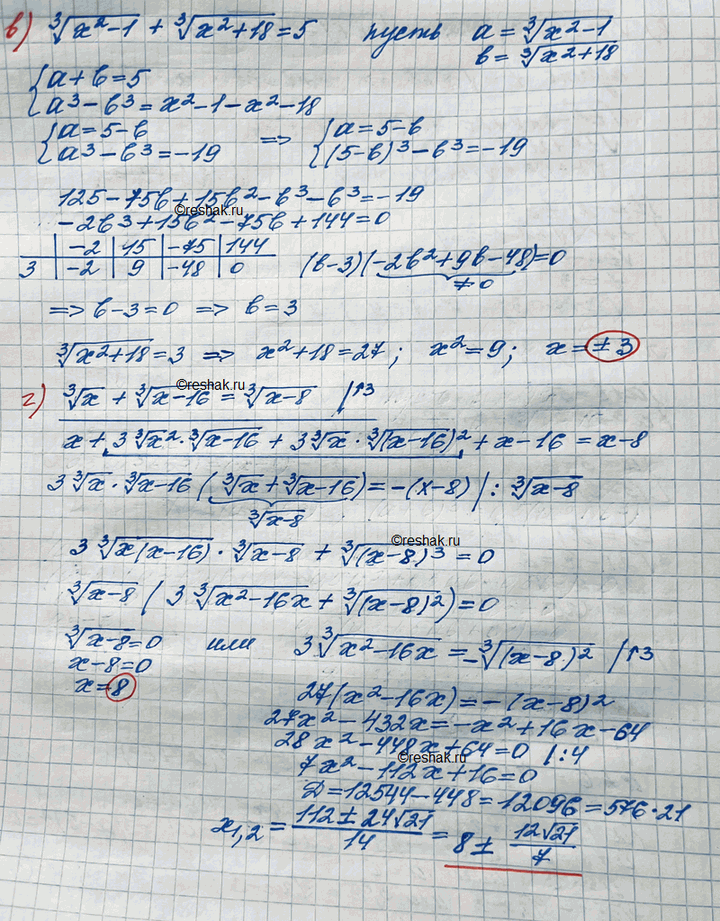 в) ∛(x²-1) + ∛(x²+18) = 5 пусть a = ∛(x²-1)
b = ∛(x²+18)
{a+b=5
{a³-b³=x²-1-x²-18
{a=5-b => {a=5-b
{a³-b³=-19 {(5-b)³-b³=-19
125-75b+15b²-b³-b³=-19
©reshak.ru
-2b³+15b²-75b+144=0
| -2 | 15 | -75 | 144
3 | -2 | 9 | -48 | 0 (b-3)(-2b²+9b-48)=0
≠0
=> b-3=0 => b=3
∛(x²+18)=3 => x²+18=27; x²=9; x=±3
©reshak.ru
г) ∛x + ∛(x-16) = ∛(x-8) /↑3
x+3∛x²·∛(x-16)+3∛x·∛(x-16)²+x-16=x-8
3∛x·∛(x-16)(∛x+∛(x-16))=-(x-8)/:∛(x-8)
∛(x-8)
©reshak.ru
3∛(x(x-16))·∛(x-8)+∛(x-8)³=0
∛(x-8)(3∛(x²-16x)+∛(x-8)²)=0
∛(x-8)=0 или 3∛(x²-16x)=-∛(x-8)² /↑3
x-8=0
x=8
27(x²-16x)=-(x-8)²
27x²-432x=-x²+16x-64
28x²-448x+64=0 /:4
©reshak.ru
7x²-112x+16=0
D=12544-448=12096=576·21
x₁,₂=(112±24√21)/14=8±(12√21)/7